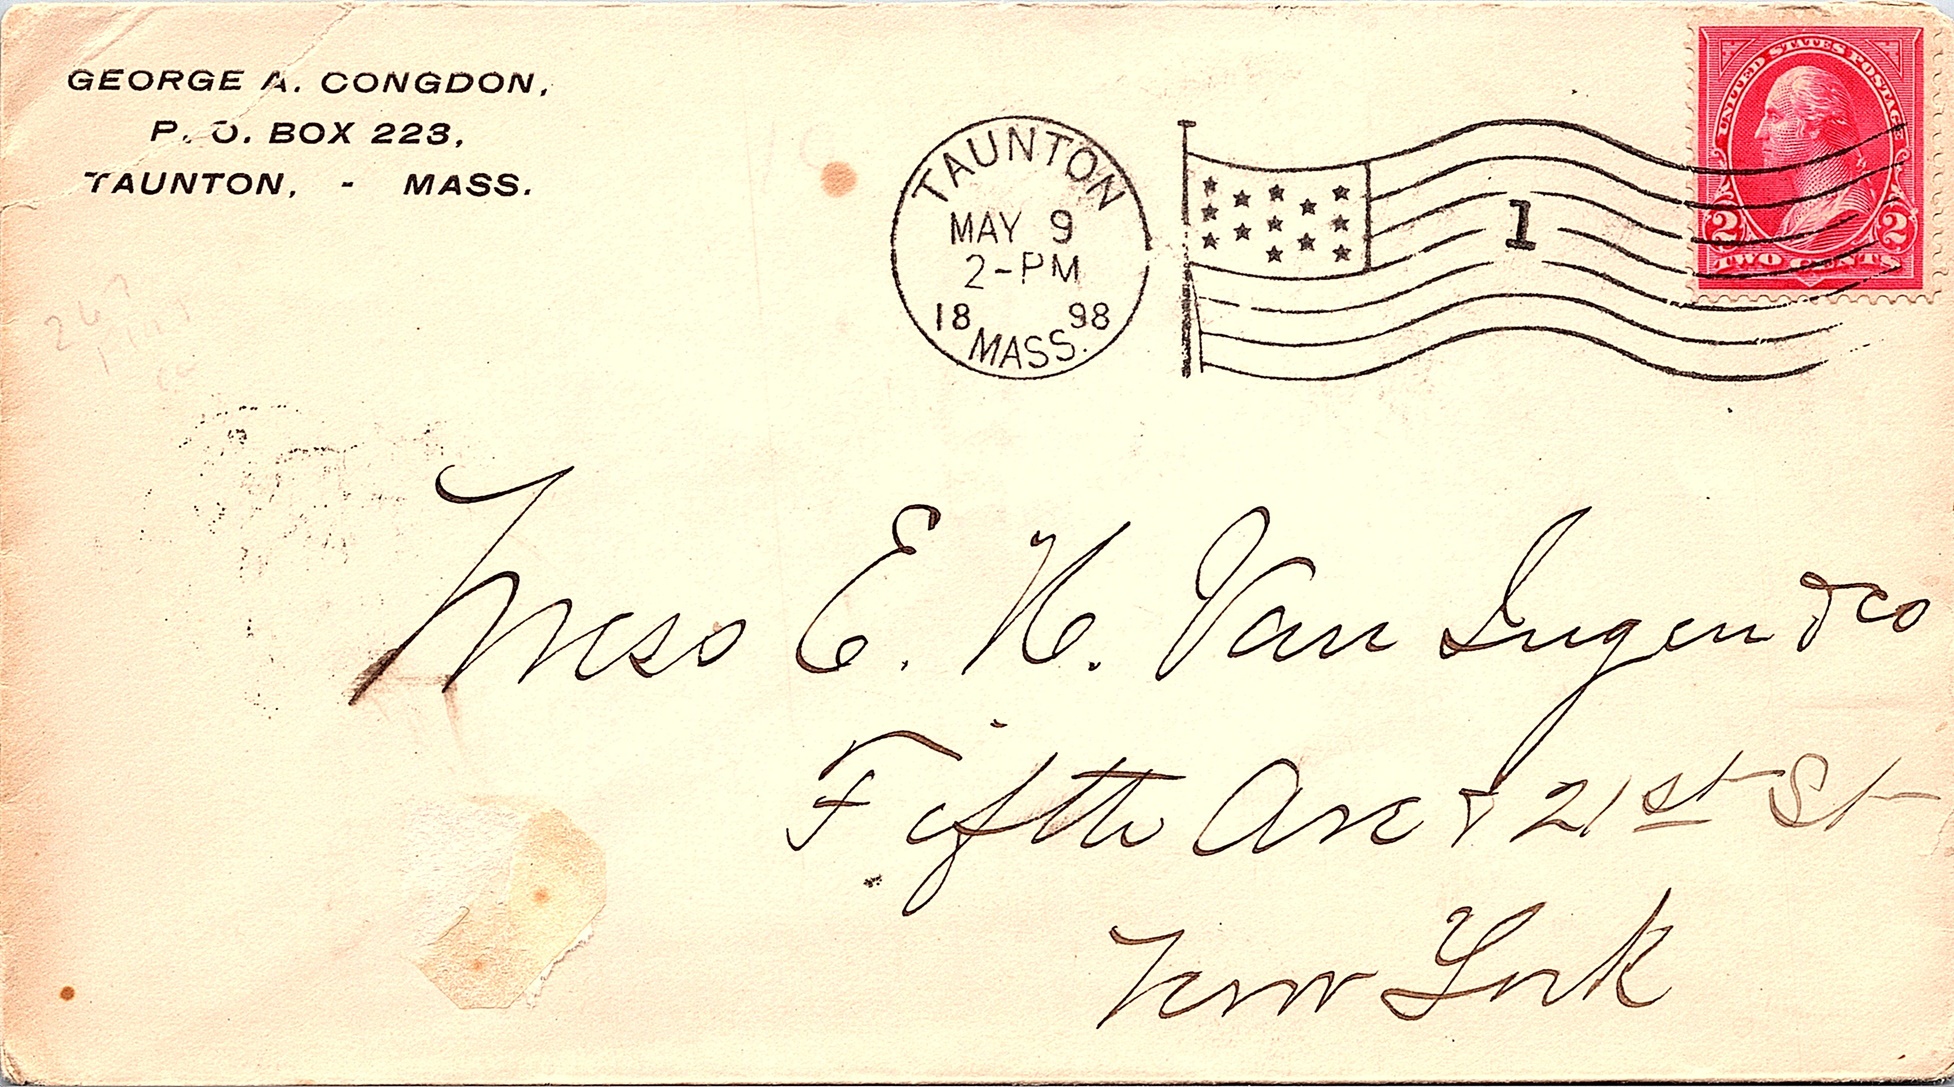 GEORGE A. CONGDON,
P. O. BOX 223,
TAUNTON, - MASS.
TAUNTON
MAY 9
2-PM
18 98
MASS.
1
UNITED STATES POSTAGE
2 2
TWO CENTS
Mess E. H. Van Ingen & Co
Fifth Ave & 21st St
New York